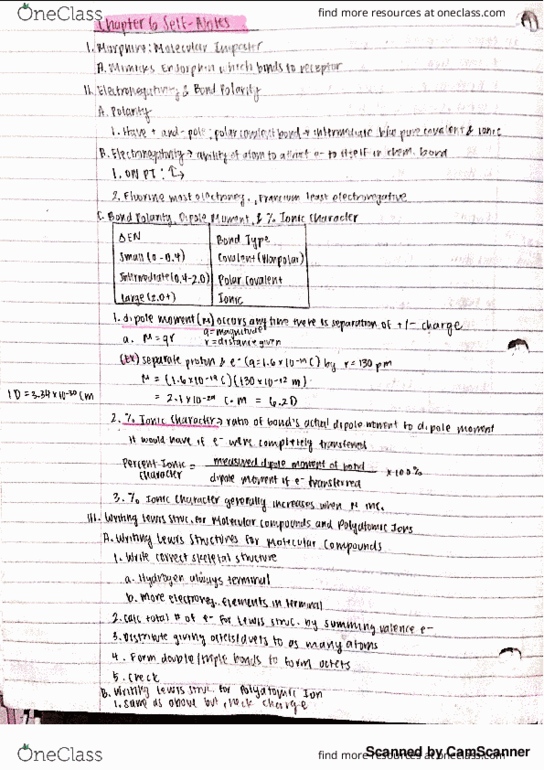 OneClass
find more resources at oneclass.com
Chapter 6 Self-Notes
I. Morphine: Molecular Imposter
A. Mimics Endorphin which bonds to receptor
II. Electronegativity & Bond Polarity
A. Polarity
1. Have + and - pole: polar covalent bond → intermediate b/w pure covalent & ionic
B. Electronegativity → ability of atom to attract e- to itself in chem. bond
1. ON PT:
2. Fluorine most electroneg., Francium least electronegative
C. Bond Polarity, Dipole Moment, & % Ionic Character
ΔEN Bond Type
Small (0-0.4) Covalent (Nonpolar)
Intermediate (0.4-2.0) Polar Covalent
Large (2.0+) Ionic
1. dipole moment (μ) occurs any time there is separation of +/- charge
a. μ = qr q = magnitude r = distance given
(EX) separate proton & e- (q = 1.6 x 10-19 C) by r = 130 pm
μ = (1.6 x 10-19 C)(130 x 10-12 m)
1D = 3.34 x 10-30 C m
= 2.1 x 10-29 C · m = 6.2 D
2. % Ionic Character → ratio of bond's actual dipole moment to dipole moment
it would have if e- were completely transferred
Percent Ionic Character = measured dipole moment of bond / dipole moment if e- transferred x 100%
3. % Ionic Character generally increases when inc.
III. Writing Lewis Struc. for Molecular Compounds and Polyatomic Ions
A. Writing Lewis Structures for Molecular Compounds
1. Write correct skeletal structure
a. Hydrogen always terminal
b. More electroneg. elements in terminal
2. Calc total # of e- for Lewis struc. by summing valence e-
3. Distribute giving octets/duets to as many atoms
4. Form double/triple bonds to form octets
5. Check
B. Writing Lewis struc. for Polyatomic Ion
1. same as above but charge
OneClass
find more resources at oneclass.com
Scanned by CamScanner